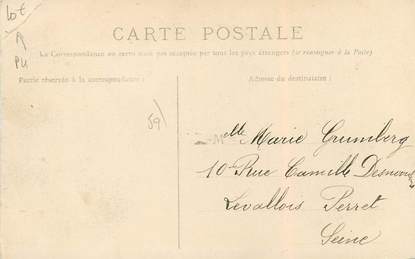 Lot
PU
CARTE POSTALE
La Correspondance au verso n'est pas acceptée par tous les pays étrangers (se renseigner à la Poste)
Partie réservée à la correspondance
Adresse du destinataire
59
Melle Marie Grumberg
10 Rue Camille Desmoulins
Levallois Perret
Seine